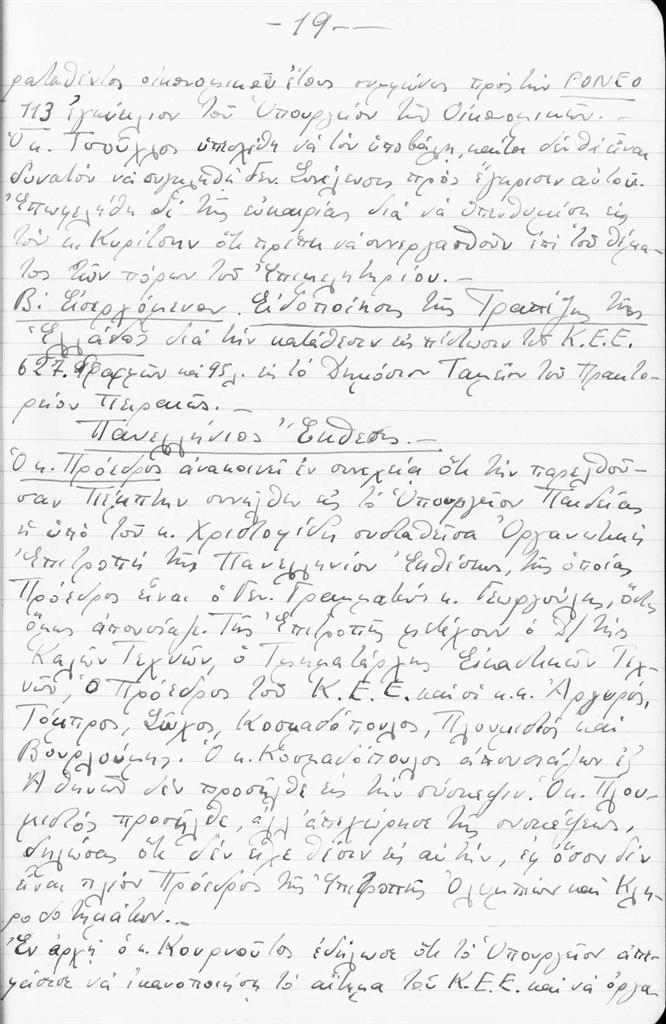 -19-
ραταθέντος οἰκονομικοῦ ἔτους συμφώνως πρὸς τὴν ΡΟΝΕΟ
113 ἐγκύκλιον τοῦ Ὑπουργείου τῶν Οἰκονομικῶν.-
Ὁ κ. Τσοῦχλος ὑπεσχέθη νὰ τὸν ὑποβάλῃ, καίτοι δὲν θὰ εἶναι
δυνατὸν νὰ συγκληθῇ Γεν. Συνέλευσις πρὸς ἔγκρισιν αὐτοῦ.
Ἐπωφελήθη δὲ τῆς εὐκαιρίας διὰ νὰ ὑπενθυμίσῃ εἰς
τὸν κ. Κυρίτσην ὅτι πρέπει νὰ συνεργασθοῦν ἐπὶ τοῦ θέμα-
τος τῶν πόρων τοῦ Ἐπιμελητηρίου.-
Β! Εἰσερχόμενον. Εἰδοποίησις τῆς Τραπέζης τῆς
Ἑλλάδος διὰ τὴν κατάθεσιν εἰς πίστωσιν τοῦ Κ.Ε.Ε.
627. δραχμῶν καὶ 95λ. εἰς τὸ Δημόσιον Ταμεῖον τοῦ Πρακτο-
ρείου Πειραιῶς.-
Πανελλήνιος Ἔκθεσις.-
Ὁ κ. Πρόεδρος ἀνακοινεῖ ἐν συνεχείᾳ ὅτι τὴν παρελθοῦ-
σαν Πέμπτην συνῆλθεν εἰς τὸ Ὑπουργεῖον Παιδείας
ἡ ὑπὸ τοῦ κ. Χριστοφίδη συσταθεῖσα Ὀργανωτικὴ
Ἐπιτροπὴ τῆς Πανελληνίου Ἐκθέσεως, τῆς ὁποίας
Πρόεδρος εἶναι ὁ Γεν. Γραμματεὺς κ. Γεωργούλης, ὅστις
ὅμως ἀπουσίαζε. Τῆς Ἐπιτροπῆς μετέχουν ὁ Δ/τὴς
Καλῶν Τεχνῶν, ὁ Τμηματάρχης Εἰκαστικῶν Τεχ-
νῶν, Ὁ Πρόεδρος τοῦ Κ.Ε.Ε. καὶ οἱ κ.κ. Ἀργυρός,
Τόμπρος, Σῶχος, Κοσμαδόπουλος, Πλουμιστὸς καὶ
Βουρλούμης. Ὁ κ. Κοσμαδόπουλος ἀπουσιάζων ἐξ
Ἀθηνῶν δὲν προσῆλθε εἰς τὴν σύσκεψιν. Ὁ κ. Πλου-
μιστὸς προσῆλθε, ἀλλ' ἀπεχώρησε τῆς συσκέψεως,
δηλώσας ὅτι δὲν εἶχε θέσιν εἰς αὐτήν, ἐφ' ὅσον δὲν
εἶναι πλέον Πρόεδρος τῆς Ἐπιτροπῆς Ὀλυμπίων καὶ Κλη-
ροδοτημάτων.-
Ἐν ἀρχῇ ὁ κ. Κουρνοῦτος ἐδήλωσε ὅτι τὸ Ὑπουργεῖον ἀπε-
φάσισε νὰ ἱκανοποιήσῃ τὸ αἴτημα τοῦ Κ.Ε.Ε. καὶ νὰ ὀργα-